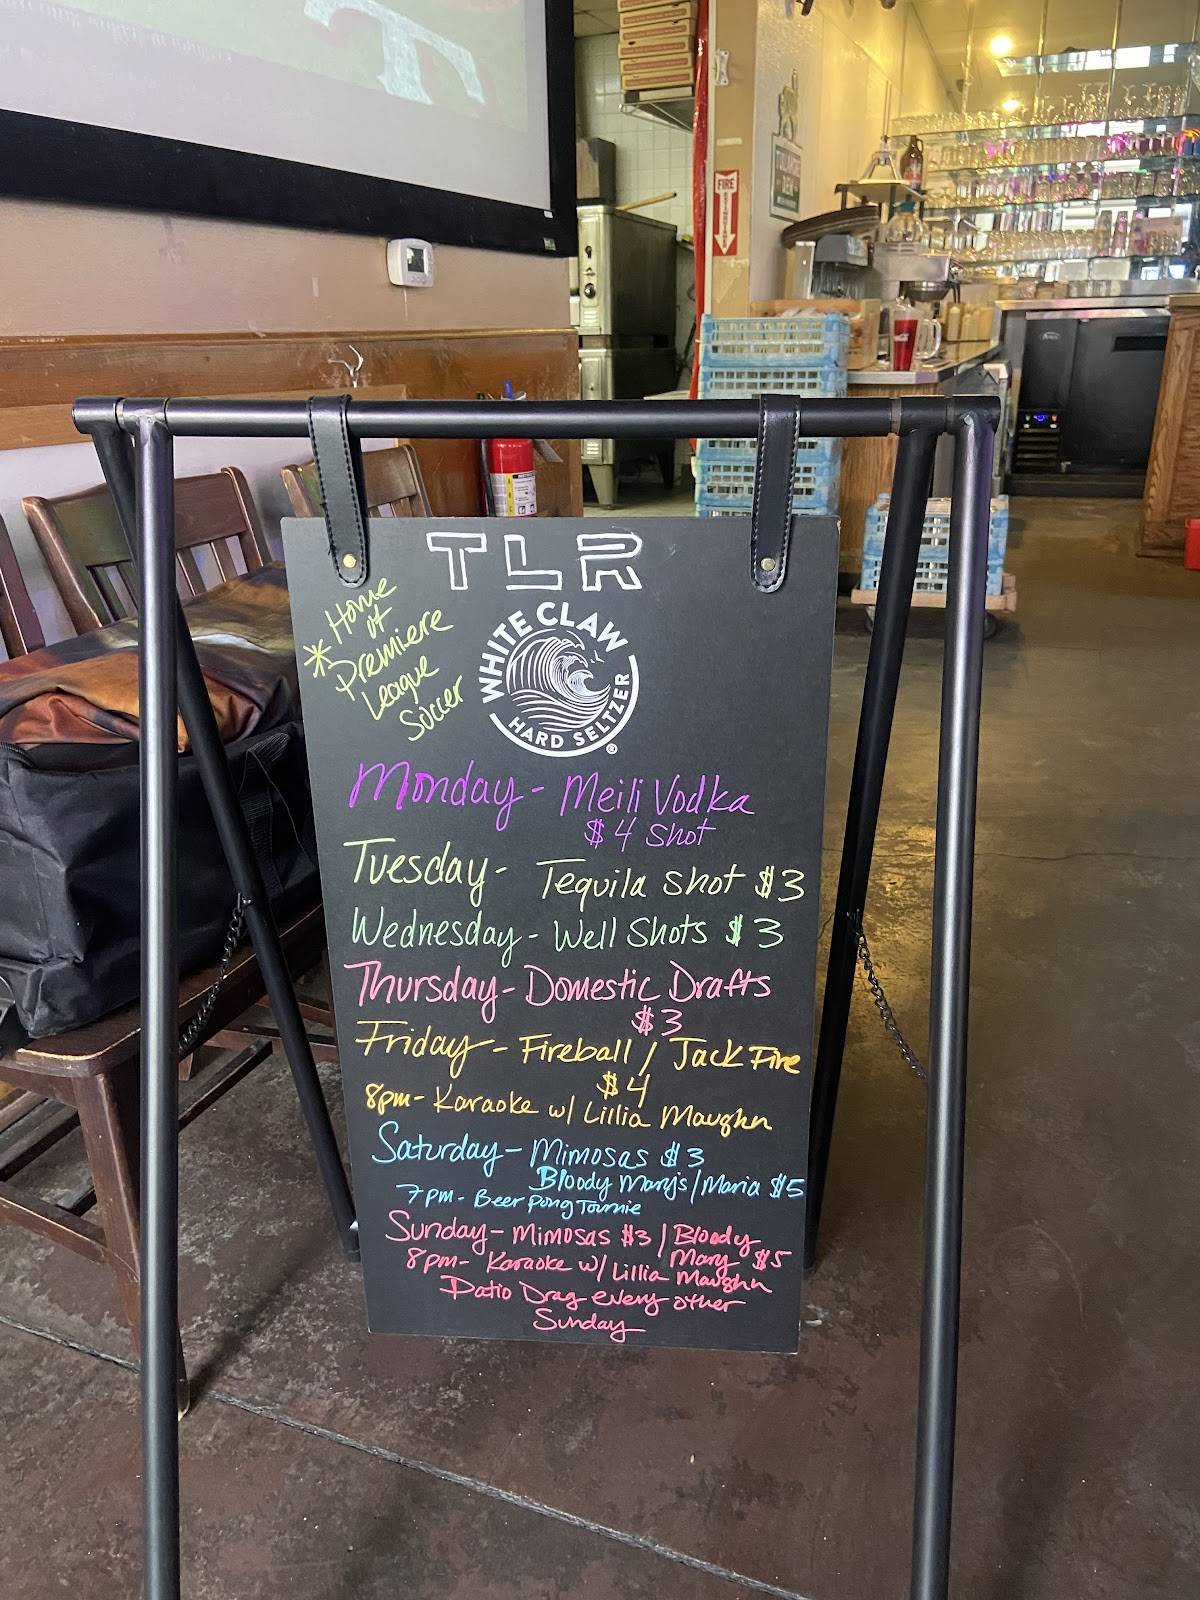 FIRE
TLR
* Home
of
Premiere
League
Soccer
WHITE CLAW
HARD SELTZER
®
Monday - Meili Vodka
$4 Shot
Tuesday - Tequila Shot $3
Wednesday - Well Shots $3
Thursday - Domestic Drafts
$3
Friday - Fireball / Jack Fire
$4
8pm - Karaoke w/ Lillia Maughn
Saturday - Mimosas $3
Bloody Mary's / Maria $5
7pm - Beer Pong Tournie
Sunday - Mimosas $3 / Bloody
Mary $5
8pm - Karaoke w/ Lillia Maughn
Patio Drag every other
Sunday